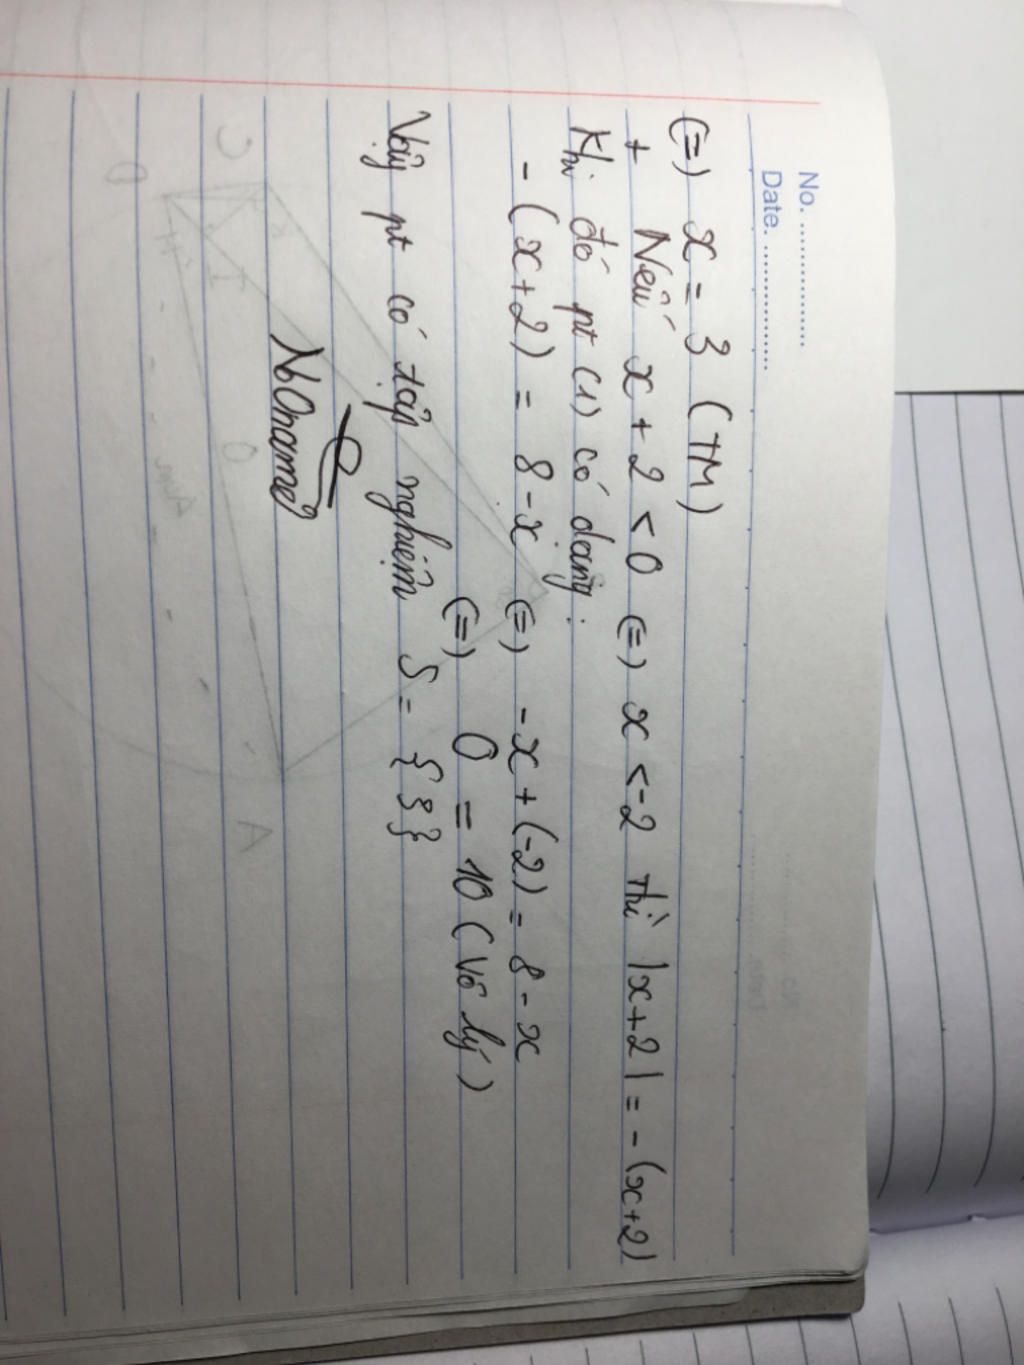 No. ................
Date. ................
(=) x = 3 (TM)
+ Nếu x + 2 < 0 (=) x < -2 thì |x+2| = - (x+2)
Khi đó pt (1) có dạng :
- (x+2) = 8 - x (=) -x + (-2) = 8 - x
(=) 0 = 10 (Vô lý)
Vậy pt có tập nghiệm S = {3}
NoOname